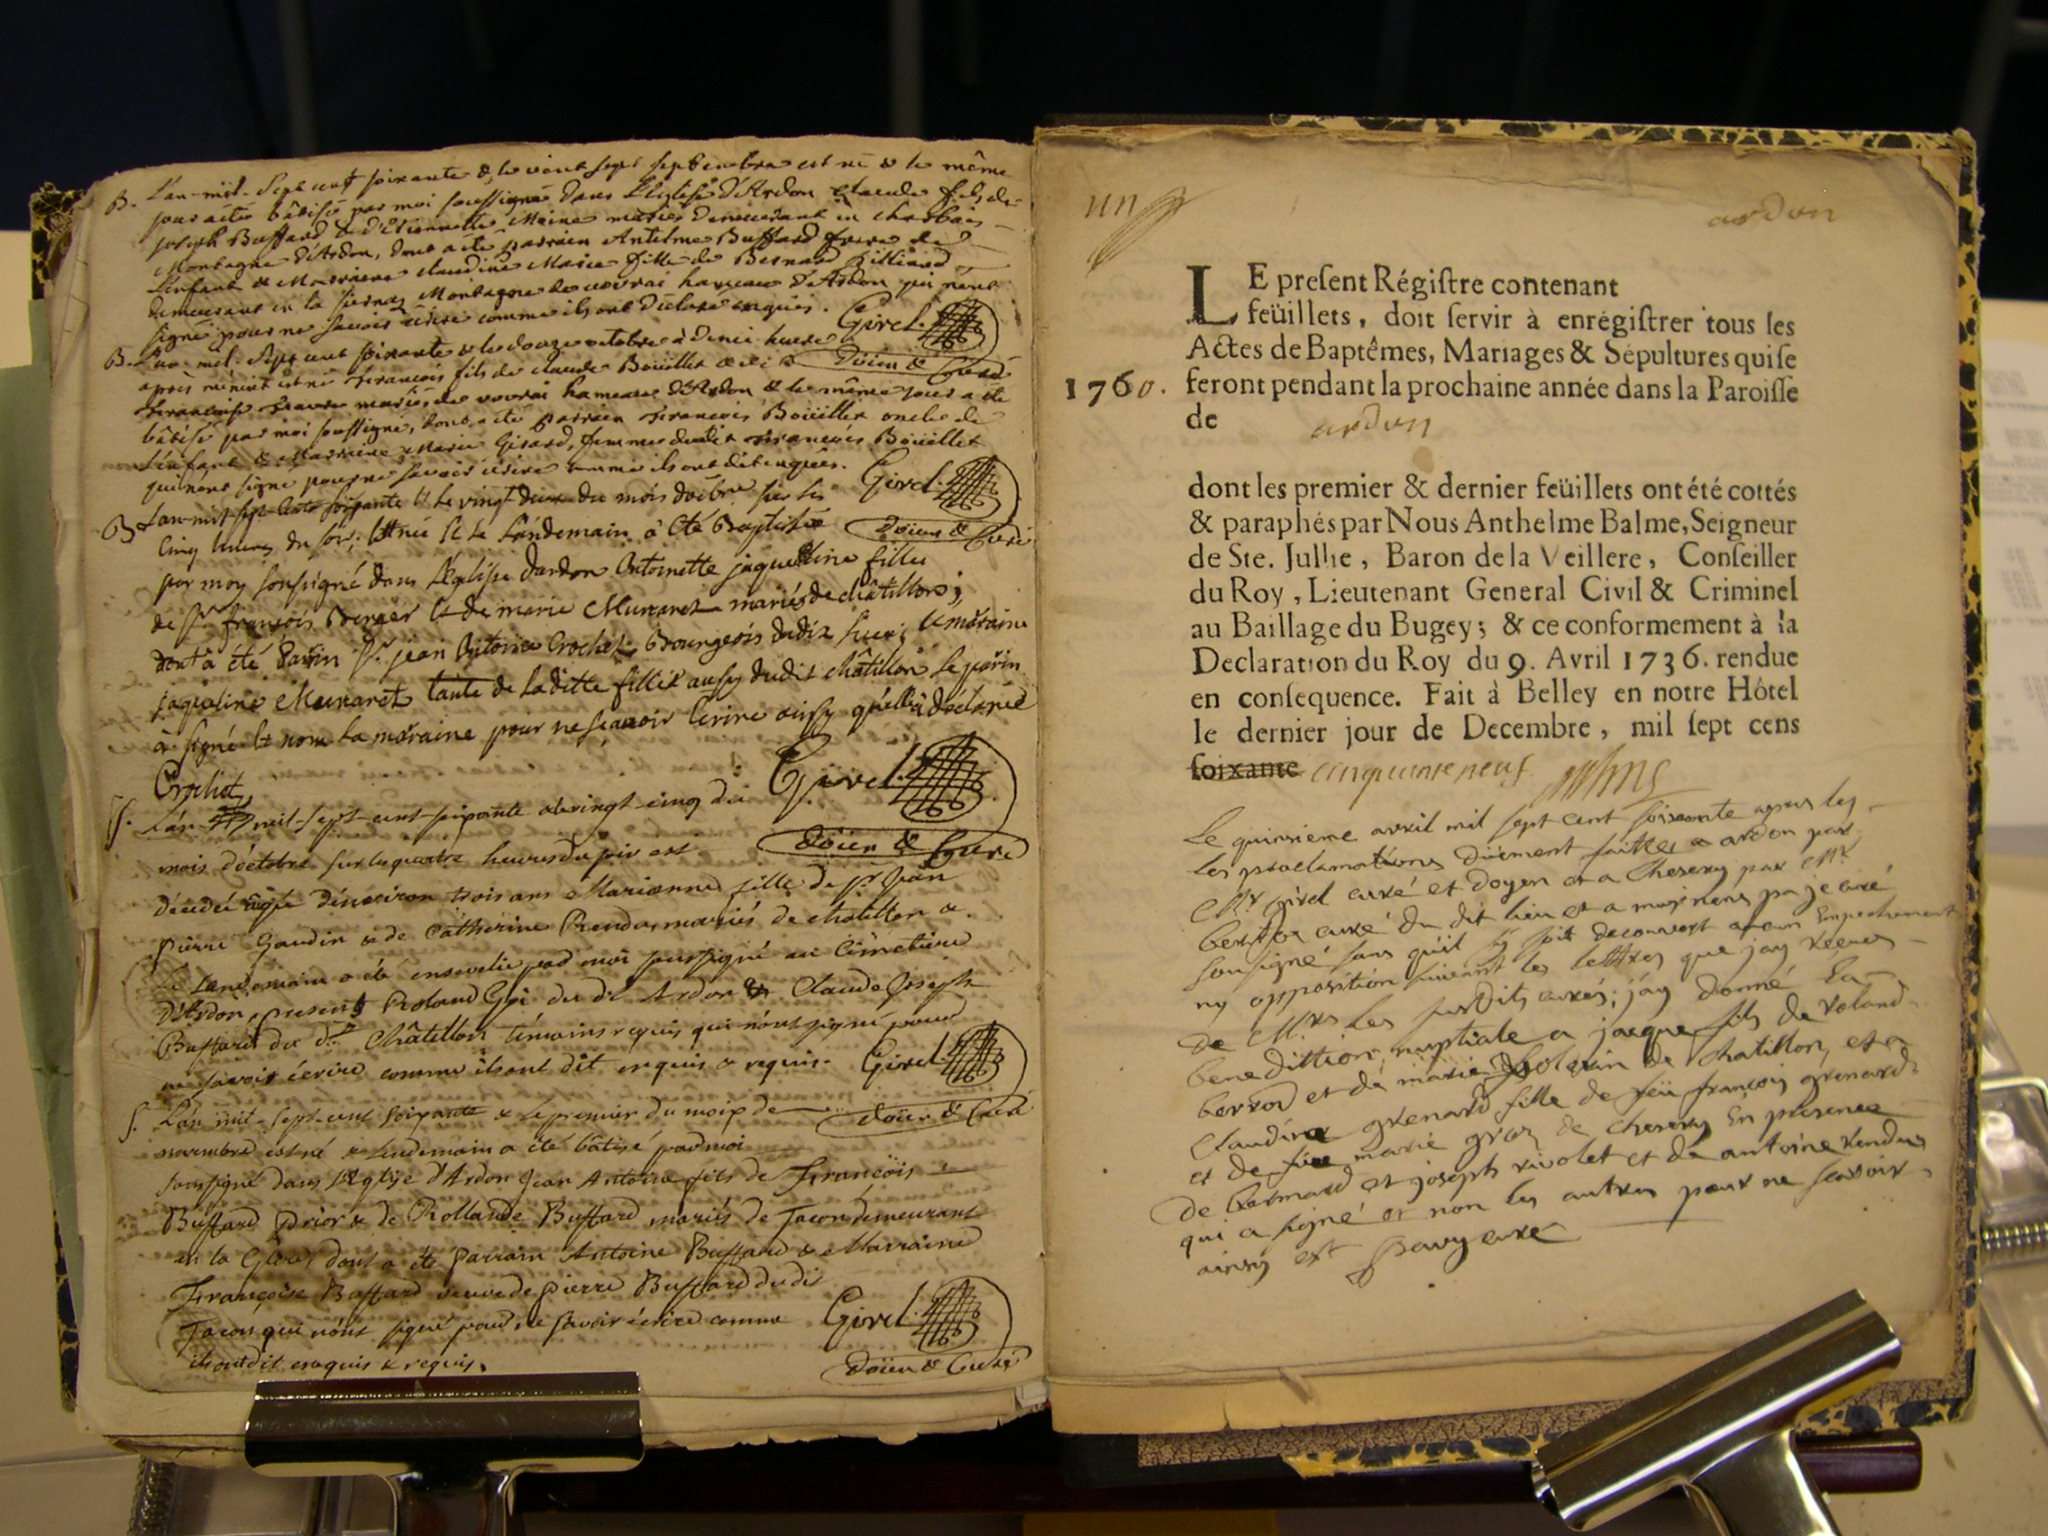 B. L'an mil-sept cent soixante & le vint sept septembre est né & le même
jour a été bâtisé par moi soussigné dans l'Eglise d'Ardon claude fils de
joseph Buffard & d'Etiennette Moine mariés demeurant en
Montagne d'Ardon, dont a été parrain Antelme Buffard frere de
l'enfant & Marraine claudine Marie fille de Bernard
demeurant en la Montagne de vouvrai hameau d'Ardon qui n'ont
signé pour ne savoir écrire comme ils ont déclaré enquis. Girel.
doïen & Curé
B. L'an mil-sept cent soixante & le douze octobre à demi heure
après minuit est né François fils de claude Boüillet & de
Françoise mariés de vouvrai hameau d'Ardon & le même jour a été
bâtisé par moi soussigné, dont a été parrain François Boüillet oncle de
l'enfant & Marraine Marie Girard, femme dudit François Boüillet
qui n'ont signé pour ne savoir écrire comme ils ont dit enquis. Girel.
doïen & Curé
B L'an mil sept cents soixante et le vingt deux du mois d'octobre sur les
cinq heures du soir, est née et le landemain à été Baptisée
par moy soussigné dans l'Eglise dardon Antoinette jaqueline fille
de Sr. françois Berger et de marie Mumaret mariés de châtillon;
dont a été parin Sr. jean Antoine Crochet Bourgeois dudix lieu; et maraine
jaqueline Mumaret tante de laditte fille aussy dudit châtillon le parin
à signé et non la maraine pour ne sçavoir écrire ainsy qu'elle à déclaré
Crochet Girel.
doïen & Curé
S. L'an mil-sept-cent-soixante & le vingt-cinq du
mois d'octobre sur les quatre heures du soir est
décédée agée d'environ trois ans Marianne fille de Sr. Jean
Pierre Gaudin & de Catherine Rendu mariés de Châtillon &
le landemain a été ensevelie par moi soussigné au Cimetiere
d'Ardon, présents Roland Goi du dit Ardon & Claude Joseph
Buffard du dt. Châtillon témoins requis qui n'ont signé pour
ne savoir écrire comme ils ont dit enquis & requis. Girel.
doïen & Curé
S. L'an mil-sept-cent soixante & le premier du mois de
novembre est né & lendemain a été bâtisé par moi
soussigné dans l'Eglise d'Ardon Jean Antoine fils de François
Buffard Prior & de Rollande Buffard mariés de Tacon demeurant
en la dont a été parrain Antoine Buffard & Marraine
Françoise Buffard veuve de pierre Buffard dudit
Tacon qui n'ont signé pour ne savoir écrire comme Girel.
ils ont dit enquis & requis. doïen & Curé
un
ardon
LE present Régistre contenant
feüillets, doit servir à enrégistrer tous les
Actes de Baptêmes, Mariages & Sépultures qui se
1760. feront pendant la prochaine année dans la Paroisse
de ardon
dont les premier & dernier feüillets ont été cottés
& paraphés par Nous Anthelme Balme, Seigneur
de Ste. Jullie, Baron de la Veillere, Conseiller
du Roy, Lieutenant General Civil & Criminel
au Baillage du Bugey; & ce conformement à la
Declaration du Roy du 9. Avril 1736. rendue
en consequence. Fait à Belley en notre Hôtel
le dernier jour de Decembre, mil sept cens
soixante cinquante neuf
Le quinsieme avril mil sept cent soixante apres les
les proclamations duement faittes a ardon par
Mr girel curé et doyen et a Chesery par Mr
curé du dit lieu et a par je curé
sousigné sans qu'il sy soit decouvert aucun Empechement
ny opposition suivant les lettres que jay reçues
de Mrs les susdits curés; jay donné la
benedittion nuptiale a jacque fils de roland
berrod et de marie de Chatillon, et a
Claudine grenard fille de feu françois grenard
et de feue marie gros de Chesery En presence
de bernard et joseph rivolet et de antoine rendu
qui a signé et non les autres pour ne scavoir
ainsy est curé